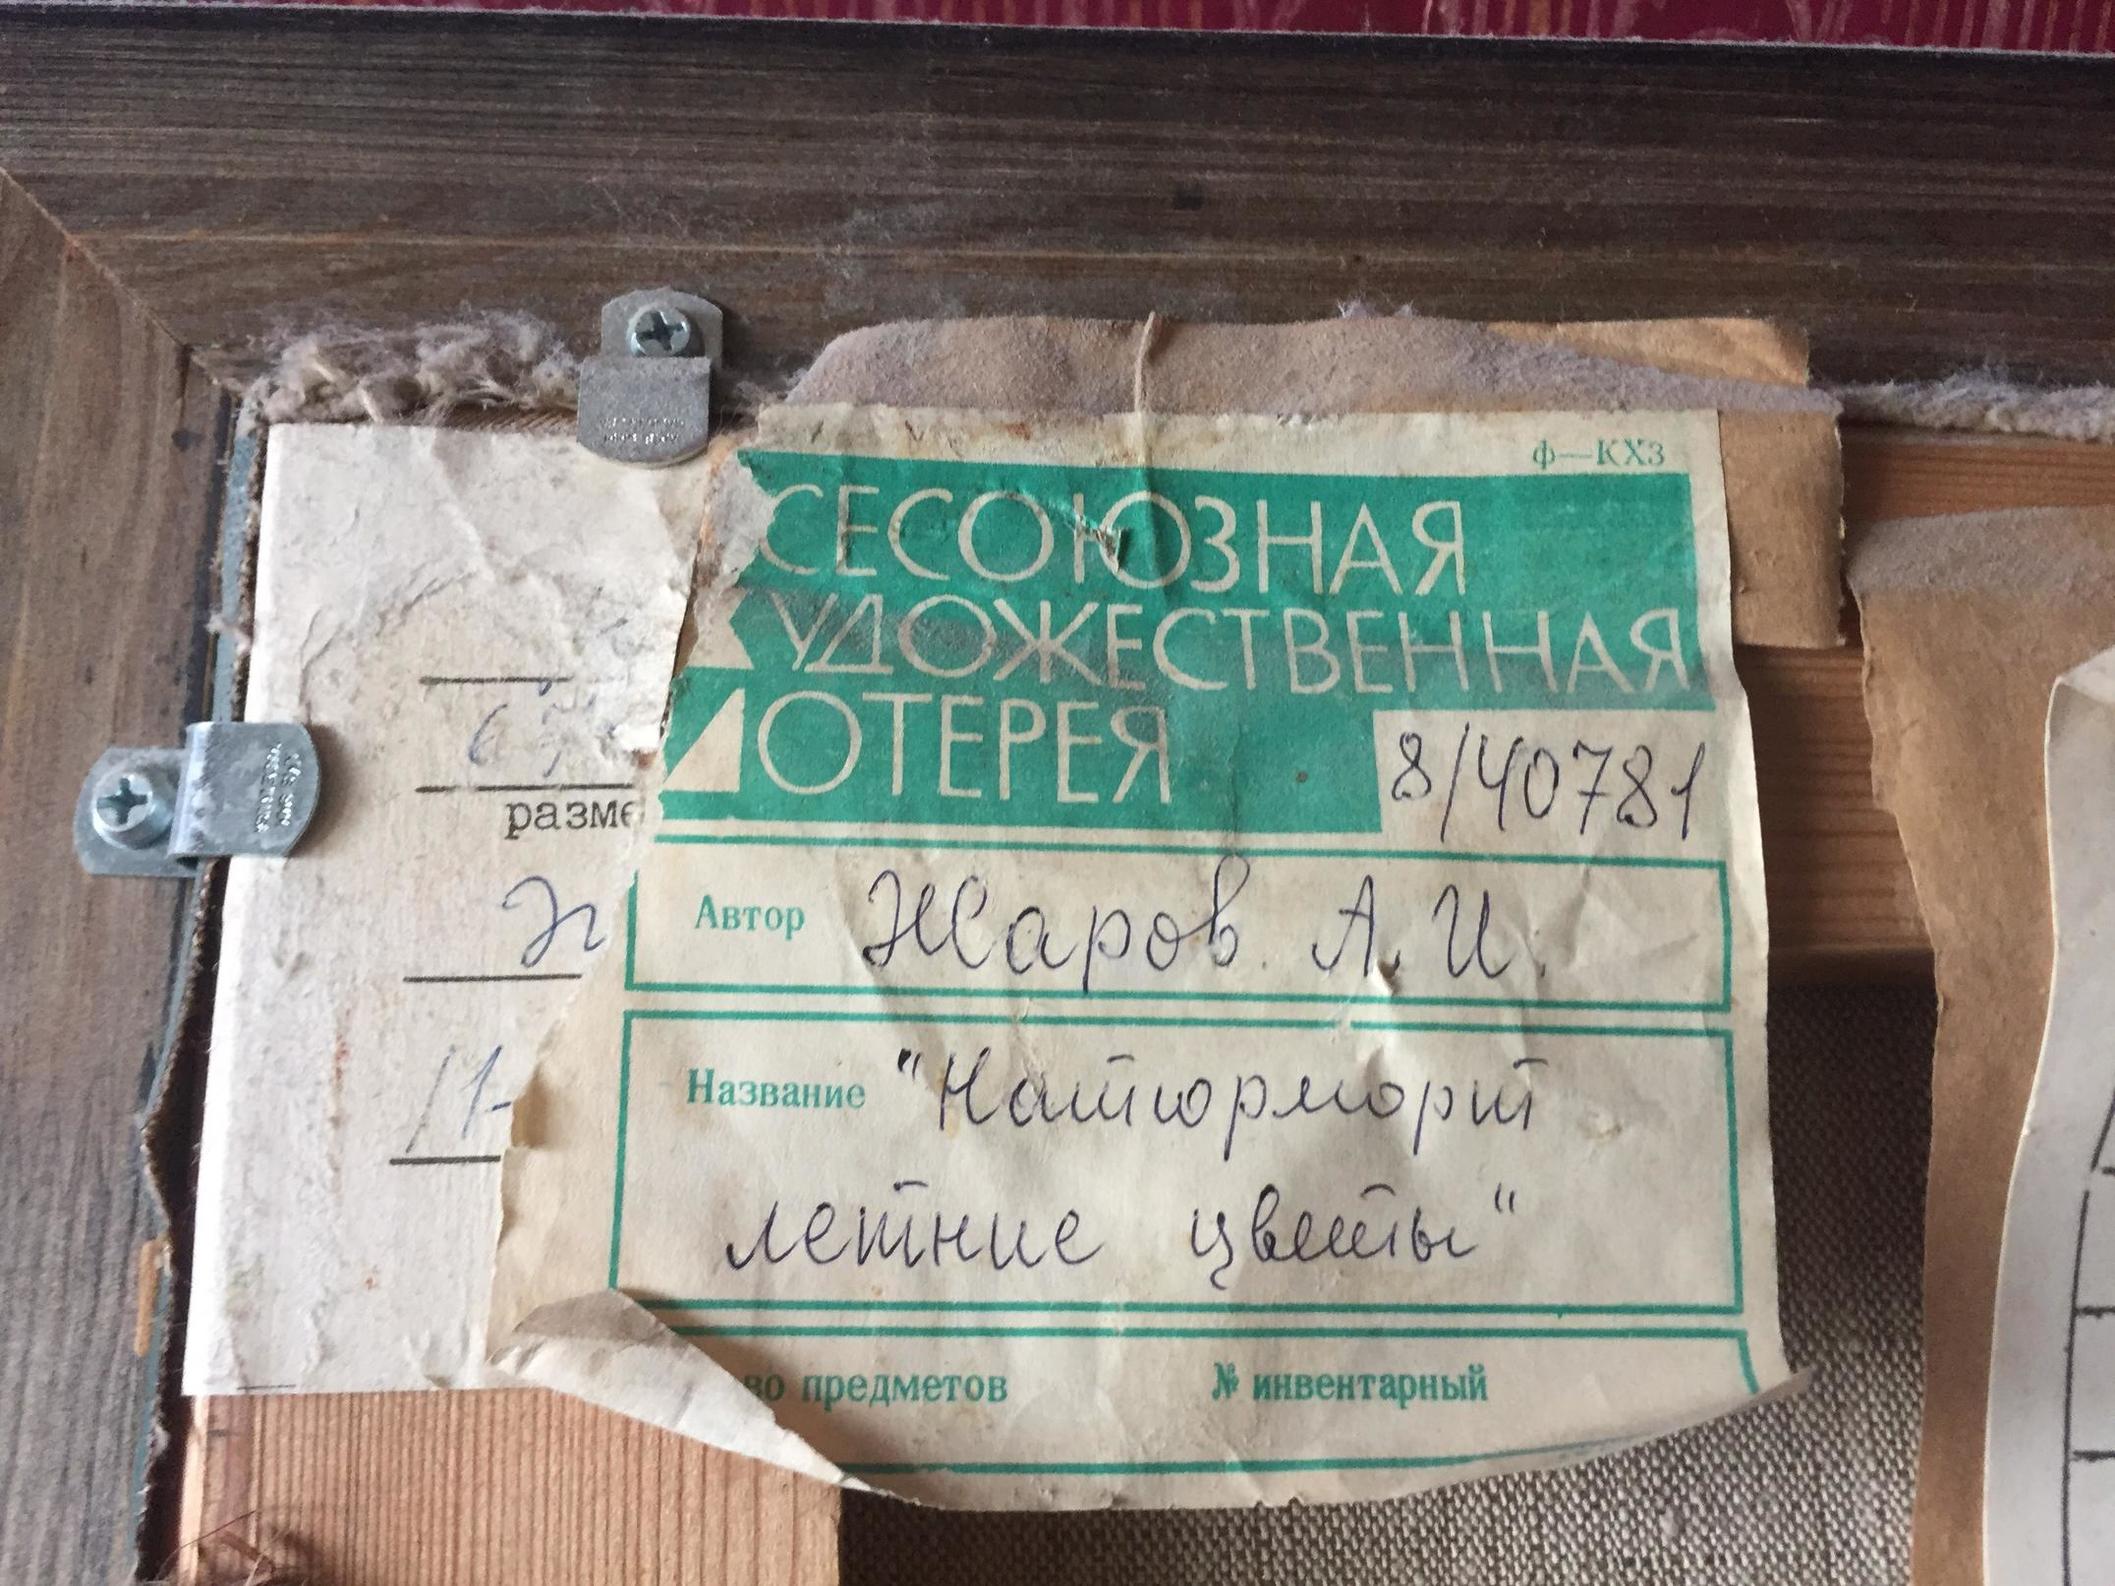 ф—КХЗ
СЕСОЮЗНАЯ
ХУДОЖЕСТВЕННАЯ
ЛОТЕРЕЯ
8/40781
разме
Автор Жаров А. И.
Название "Натюрморт
летние цветы"
во предметов № инвентарный